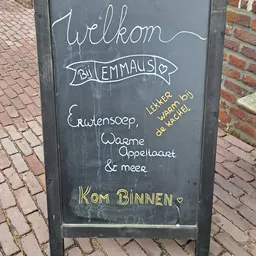 Welkom
Bij EMMAUS
LEKKER
WARM bij
de KACHEL
ERwtensoep,
WARme
Appeltaart
& meer
KOM BINNEN